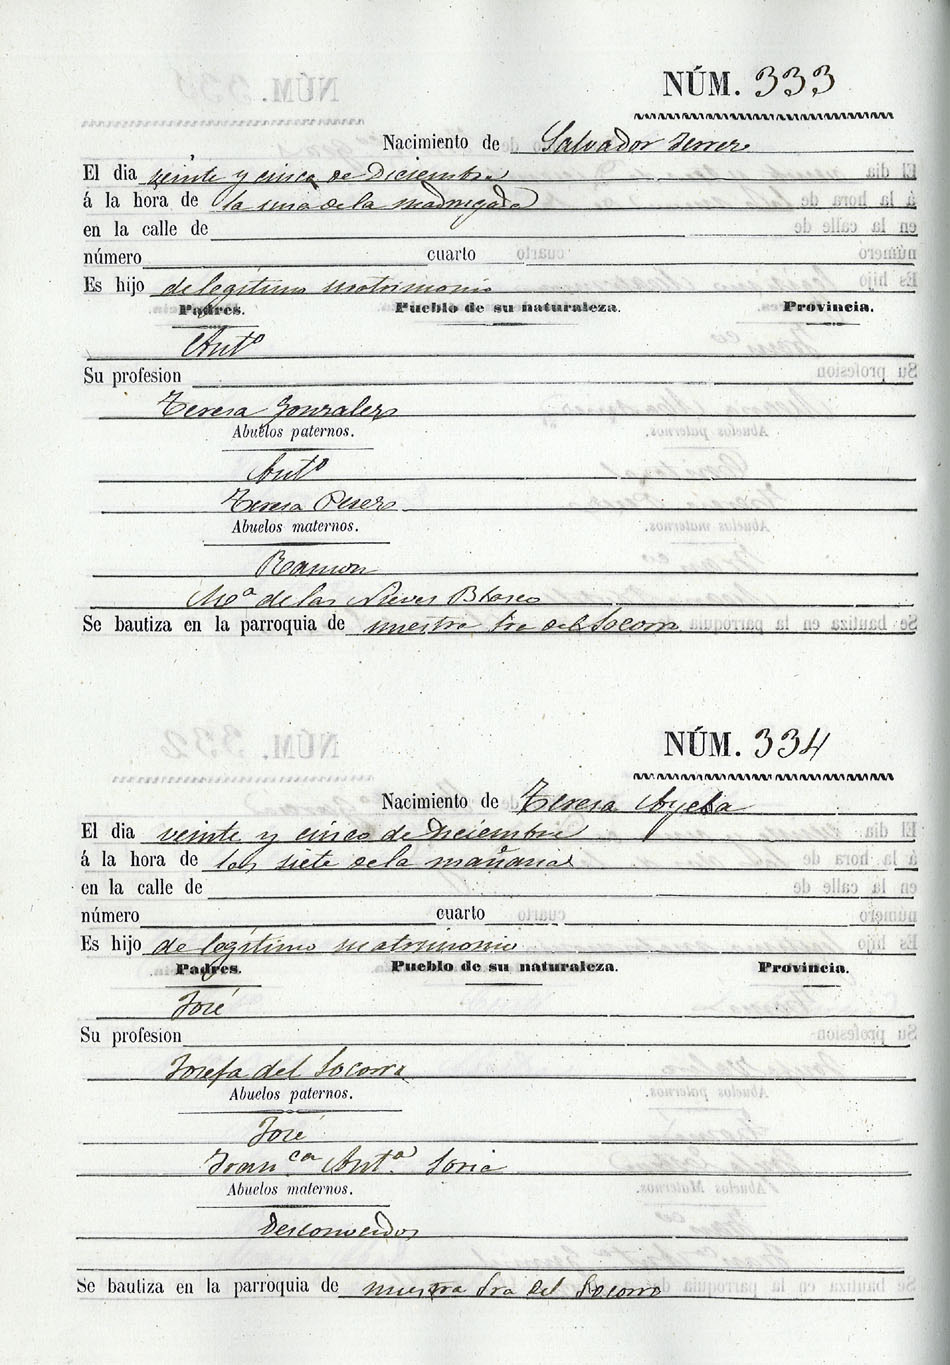 NÚM. 333
Nacimiento de Salvador Ferrer
El dia veinte y cinco de Diciembre
á la hora de la una de la madrugada
en la calle de
número cuarto
Es hijo de legitimo matrimonio
Padres. Pueblo de su naturaleza. Provincia.
Antº
Su profesion
Teresa Gonzalez
Abuelos paternos.
Antº
Teresa Perez
Abuelos maternos.
Ramon
Mª de las Nieves Blasco
Se bautiza en la parroquia de nuestra Sra del Socorro
NÚM. 334
Nacimiento de Teresa Ayela
El dia veinte y cinco de Deciembre
á la hora de las siete de la mañana
en la calle de
número cuarto
Es hijo de legitimo matrimonio
Padres. Pueblo de su naturaleza. Provincia.
José
Su profesion
Josefa del Socorro
Abuelos paternos.
José
Franca Anta Soria
Abuelos maternos.
Desconocidos
Se bautiza en la parroquia de nuestra Sra del Socorro